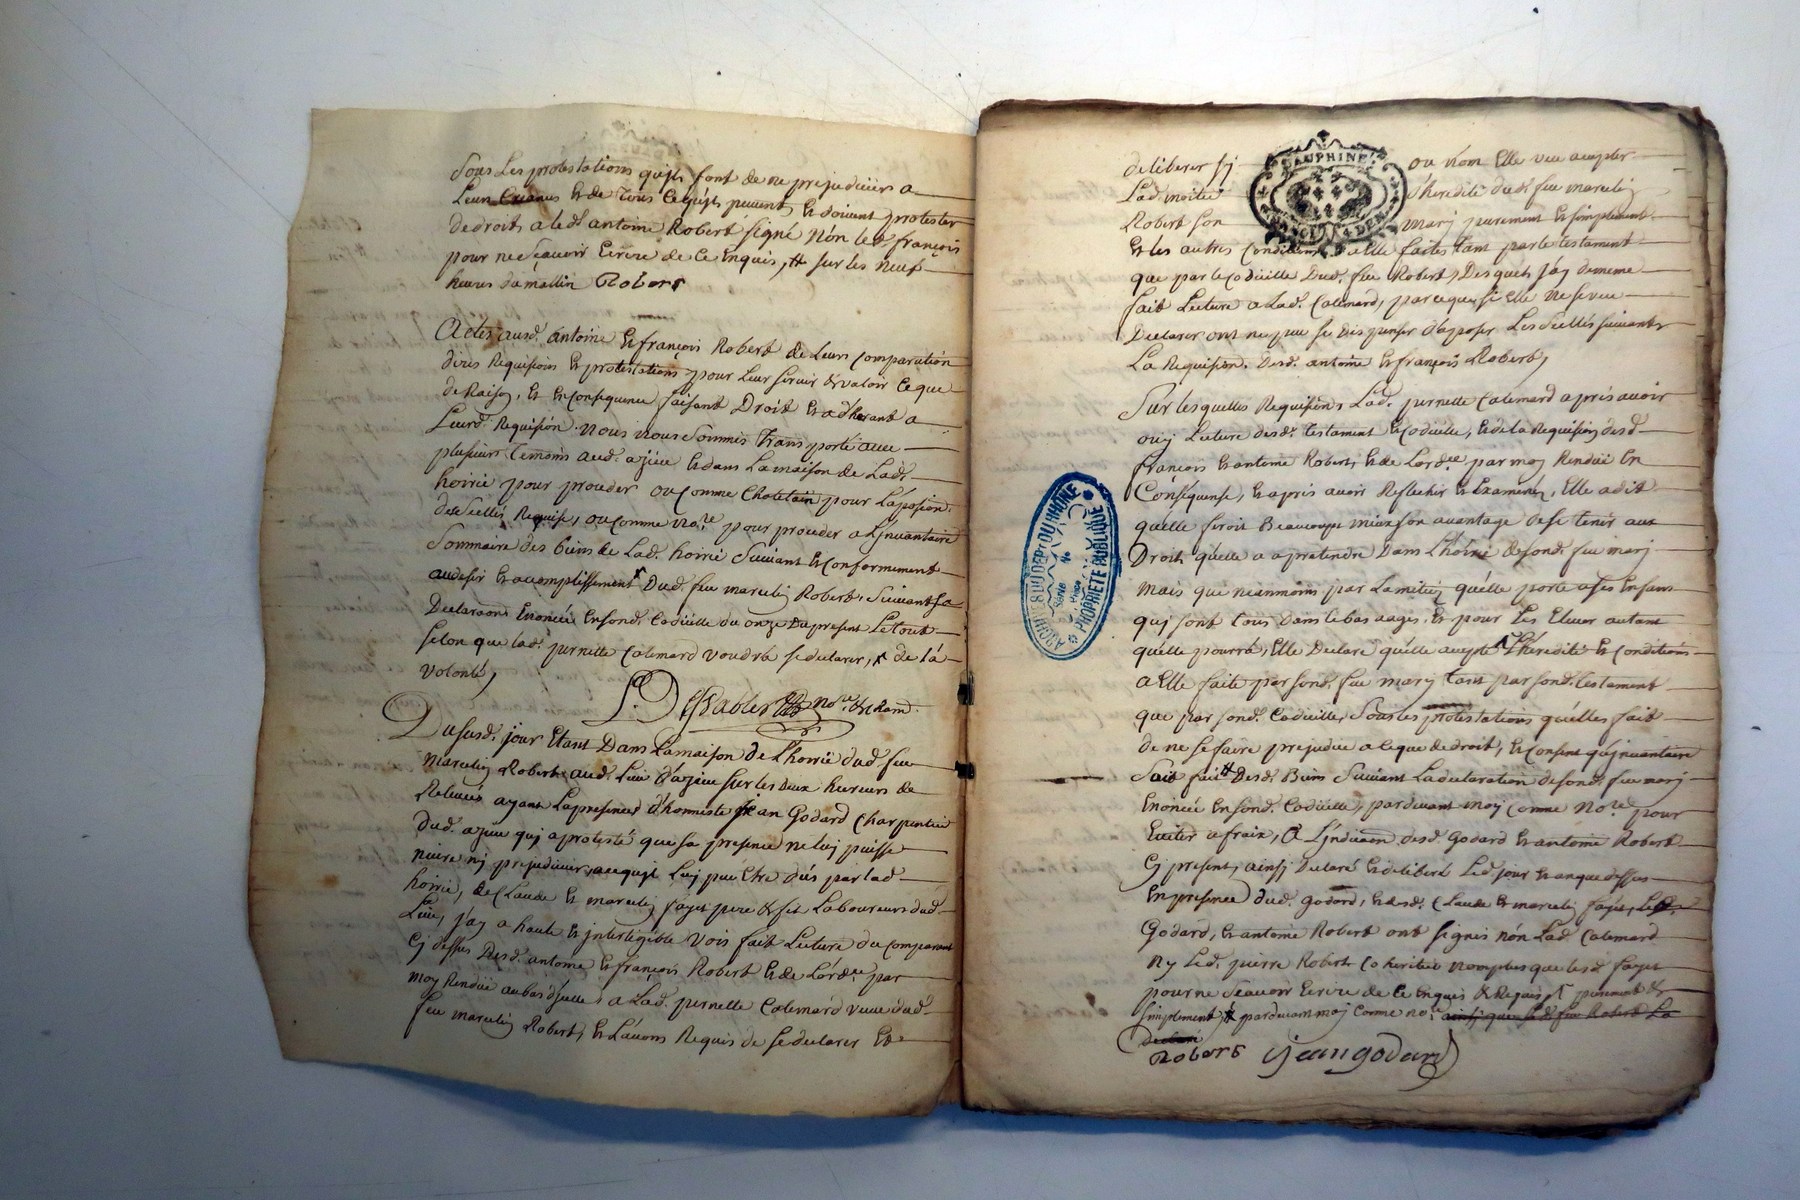 Sous Les protestations quils font de ne prejudicier a
Leurs Creances Et de Tous Ce quils peuvent Et doivent protester
de droits a led. antoine Robert signé Nón led françois
pour ne Sçavoir Ecrire de Ce Enquis, sur les neuf
heures du mattin Robert
Actes ausd. antoine Et françois Robert de Leurs Comparution
dires Requisions Et protestations pour Leur servir & valoir Ce que
de Raison, Et En Consequence faisant Droit Et adherant a
Leurd. Requision. nous nous Sommes Transporté avec
plusieurs Temoins aud. azieu Et dans La maison de Lad.
hoirie pour proceder ou Comme Chatelain pour L'aposion.
des scellés Requise, ou Comme No.re pour proceder a L'jnvantaire
Sommaire des biens de Lad. hoirie Suivant Et Conformement
au desir Et acomplissement Dud. feu marcelin Robert, Suivant sa
Declaraon Enoncée En sond. Codicille du onze Du present Le tout
selon que lad. pernette Calemard voudra se declarer, de la
volonté,
Dessables no.re
Du susd. jour Etant Dans La maison de L'hoirie dud. feu
marcelin Robert aud. Lieu d'azieu sur les deux heures de
Relevée ayant La presence d'honneste jean Godard Charpentier
dud. azieu quj a protesté que sa presence ne luj puisse
nuire nj prejudicier, a ce quil Luj peu Etre dus par lad
hoirie, de Claude Et marcelin fayet pere & fils Laboureurs dud.
Lieu, j'ay a haute Et jnterligible Vois fait Lecture du Comparant
Cj dessus Desd. antoine Et françois Robert Et de L'ord.ce par
moy Rendue au bas d'jcelle a Lad. pernette Calemard veuve dud.
feu marcelin Robert, Et L'avons Requis de se declarer Et
DAUPHINE
deliberer sj ou Nom Elle veu accepter
Lad. moitié L'heredité dud. feu marcelin
Robert son mary purement Et simplement
Et les autres Conditions d'Elle faites tant par le testament
que par le Codicille Dud. feu Robert, Desquels j'ay de meme
fait Lecture a Lad. Calemard, parce que si Elle ne se veu
Declarer ont ne peu se Dispenser d'aposer Les scellés suivants
La Requision. Desd. antoine Et françois Robert,
Sur lesquelles Requisions, Lad. pernette Calemard apres avoir
ouy Lecture desd. testament Et Codicille, Et de la Requision desd
françois Et antoine Robert, Et de L'ord.ce par moy Rendue En
Consequense, Et apres avoir Reflechir Et Examiner, Elle a dit
qu'elle seroit Beaucoups mieux son avantage de se tenir aux
Droits qu'elle a a pretendre Dans L'hoirie de sond. feu marj
mais que neanmoins par Lamitiez qu'elle porte a ses Enfans
quj sont tous dans le bas aages, Et pour Les Elever autant
qu'elle pourra, Elle Declare qu'elle accepte L'heredité Et Conditions
a Elle faite par sond. feu mary tant par sond. testament
que par sond. Codicille, Sous les protestations qu'elles fait
de ne se faire prejudice a Ce que de droit, Et Consent qu'jnvantaire
Soit fait Desd. Biens Suivant La declaration de sond. feu marj
Enoncée En sond. Codicille, pardevant moy Comme No.re pour
Eviter a fraix, A L'jndicaon desd. Godard Et antoine Robert
Cj present, ainsj Declaré Et deliberé Led. jour Et an que dessus
En presence dud. Godard, Et desd. Claude Et marcelin fayet, Led.
Godard, Et antoine Robert ont signés nón Lad. Calemard
Ny Led. pierre Robert Coheritier non plus que lesd. fayet
pour ne sçavoir Ecrire de Ce Enquis & Requis, purement &
simplement, pardevant moj Comme no.re ainsj que led. feu Robert La
declaré
Robert jean godard
ARCHIVES DU DEPT DU RHONE
Série
No
PROPRIÉTÉ PUBLIQUE